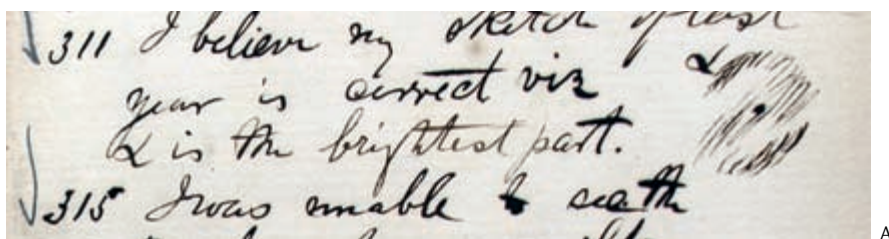 311 I believe my sketch of last
year is correct viz
α is the brightest part.
α
315 I was unable to see the
A